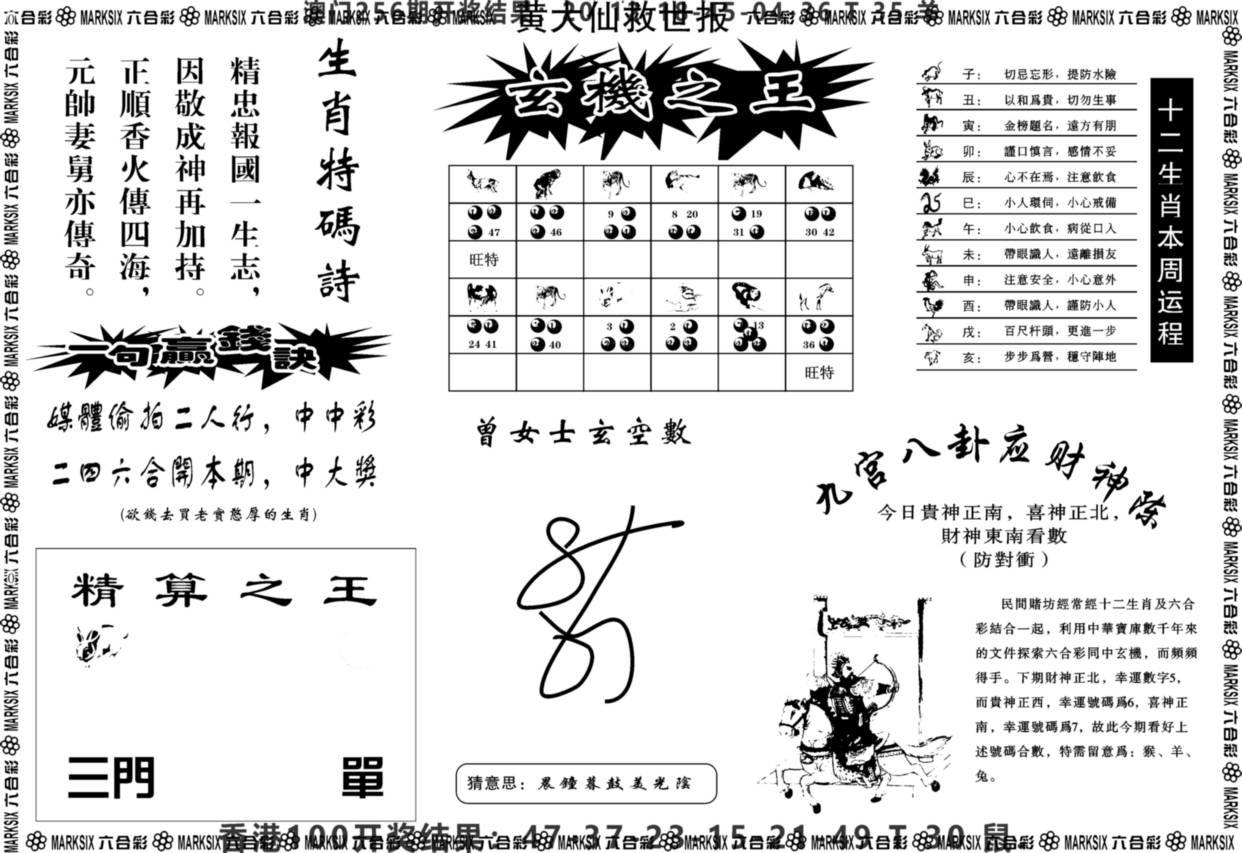 黄大仙救世报
生肖特碼詩
精忠報國一生志，
因敬成神再加持。
正順香火傳四海，
元帥妻舅亦傳奇。
一句贏錢訣
媒體偷拍二人行，中中彩
二四六合開本期，中大獎
(欲錢去買老實憨厚的生肖)
精算之王
三門 單
玄機之王
47 46 9 8 20 19 31 30 42
旺特
24 41 40 3 2 13 36
旺特
曾女士玄空數
猜意思：晨鐘暮鼓美光陰
十二生肖本周运程
子： 切忌忘形，提防水險
丑： 以和爲貴，切勿生事
寅： 金榜題名，遠方有朋
卯： 謹口慎言，感情不妥
辰： 心不在焉，注意飲食
巳： 小人環伺，小心戒備
午： 小心飲食，病從口入
未： 帶眼識人，遠離損友
申： 注意安全，小心意外
酉： 帶眼識人，謹防小人
戌： 百尺杆頭，更進一步
亥： 步步爲營，穩守陣地
九宮八卦应财神
今日貴神正南，喜神正北，
財神東南看數
（防對衝）
民間賭坊經常經十二生肖及六合
彩結合一起，利用中華寶庫數千年來
的文件探索六合彩同中玄機，而頻頻
得手。下期財神正北，幸運數字5，
而貴神正西，幸運號碼爲6，喜神正
南，幸運號碼爲7，故此今期看好上
述號碼合數，特需留意爲：猴、羊、
兔。
香港100开奖结果：47-37-23-15-21-49-T-30 鼠
MARKSIX 六合彩